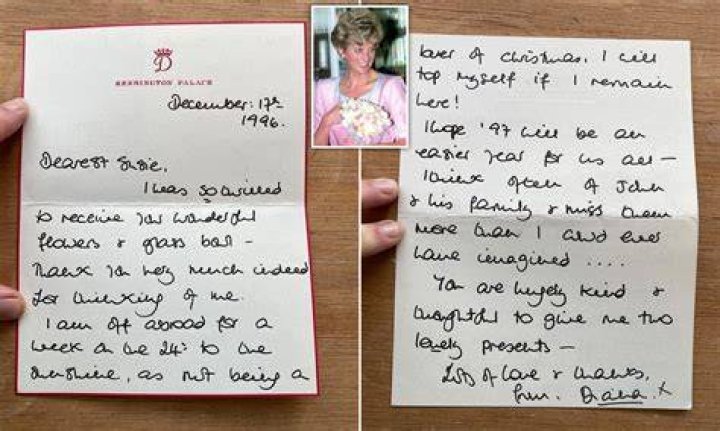 D
KENSINGTON PALACE
December. 17th
1996.
Dearest Susie,
I was so thrilled
to receive your wonderful
flowers & glass ball -
Thank you very much indeed
for thinking of me.
I am off abroad for a
week on the 24th to the
sunshine, as not being a
lover of christmas, I will
top myself if I remain
here!
I hope '97 will be an
easier year for us all -
I think often of John
& his family & miss them
more than I could ever
have imagined ....
You are hugely kind &
thoughtful to give me two
lovely presents -
Lots of love & thanks,
from. Diana. x